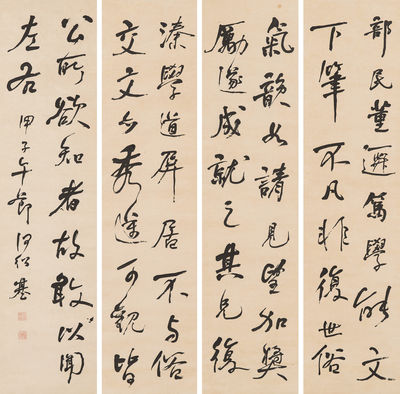 部民董遷篤學能文
下筆不凡非復世俗
氣韻如請見望加獎
勵遂成就之其兄復
溱學道屏居不与俗
交文亦秀可觀皆
公所欲知者故敢以聞
左右 甲子午節 何紹基